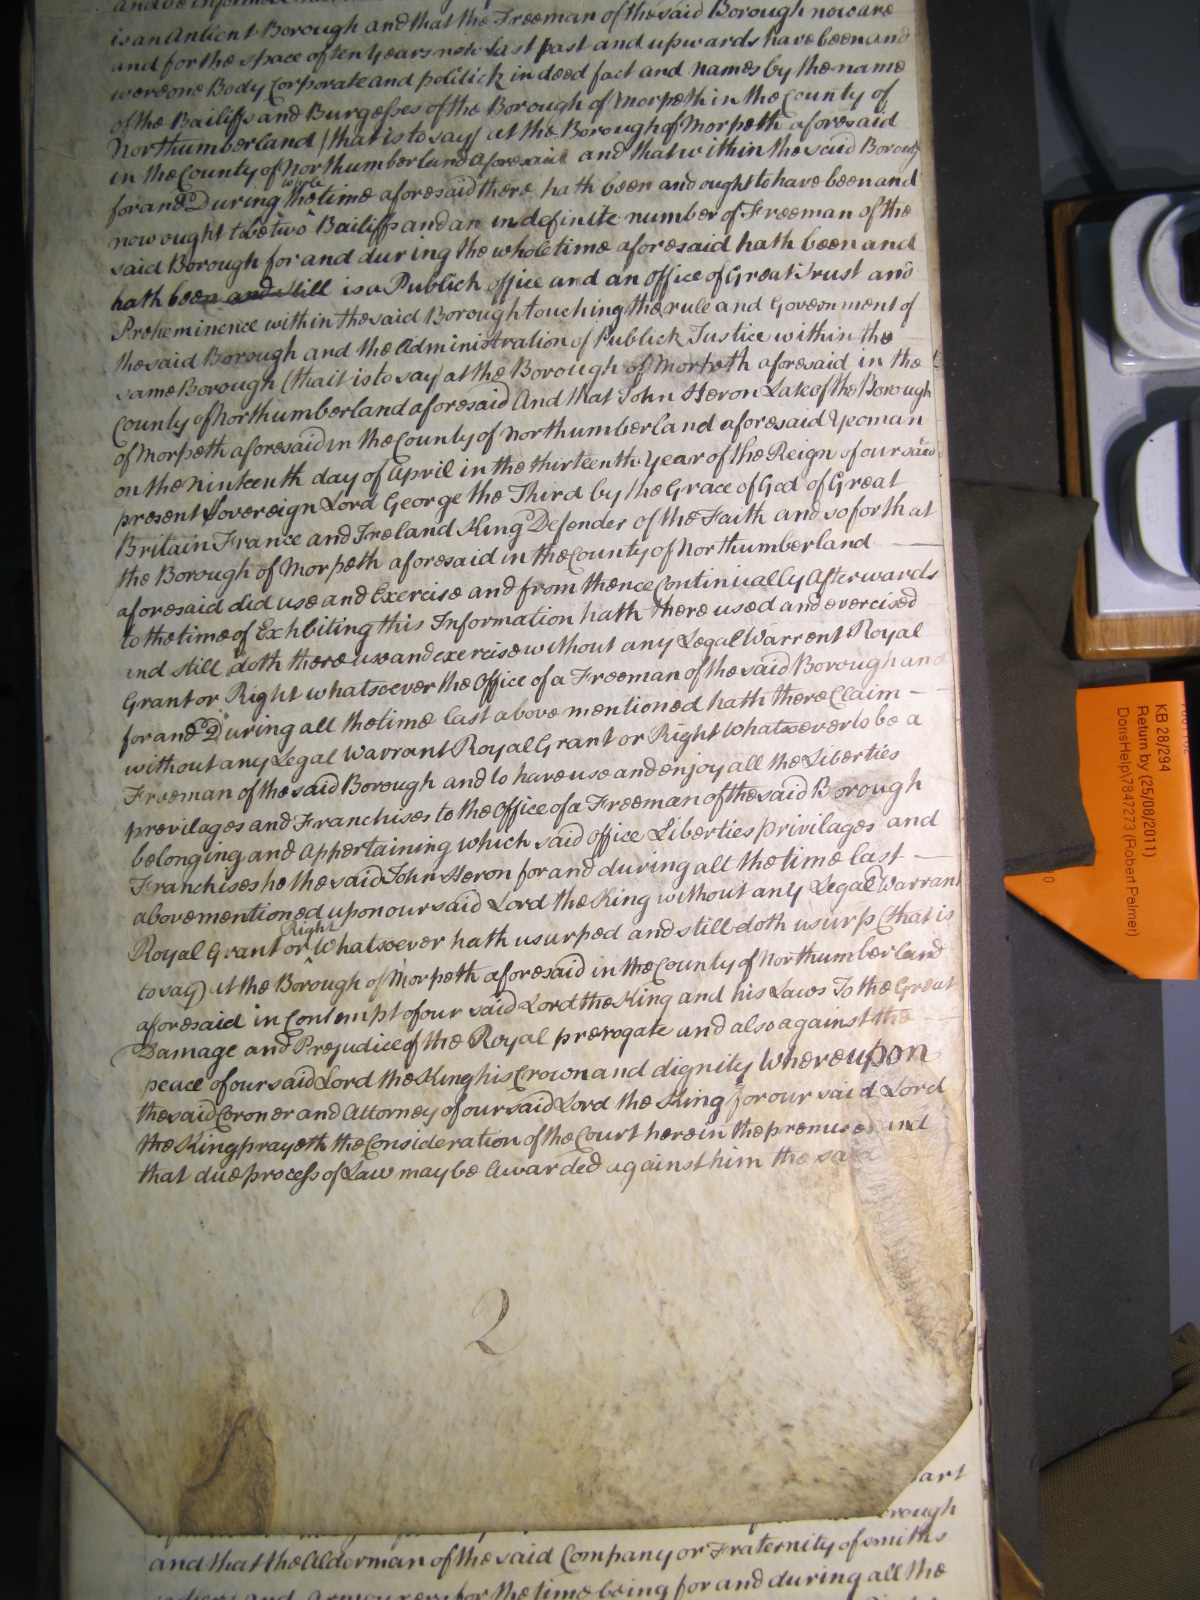 is an Antient Borough and that the Freeman of the said Borough now are
and for the space of ten Years now last past and upwards have been and
were one Body Corporate and politick in deed fact and names by the name
of the Bailiffs and Burgesses of the Borough of Morpeth in the County of
Northumberland (that is to say) at the Borough of Morpeth aforesaid
in the County of Northumberland aforesaid and that within the said Borough
for and During the whole time aforesaid there hath been and ought to have been and
now ought to be two Bailiffs and an indefinite number of Freeman of the
said Borough for and during the whole time aforesaid hath been and
hath been and still is a Publick office and an Office of Great Trust and
Preheminence within the said Borough touching the rule and Government of
the said Borough and the Administration of Publick Justice within the
same Borough (that is to say) at the Borough of Morpeth aforesaid in the
County of Northumberland aforesaid And that John Heron Late of the Borough
of Morpeth aforesaid in the County of Northumberland aforesaid Yeoman
on the Ninteenth day of April in the thirteenth Year of the Reign of our said
present Sovereign Lord George the Third by the Grace of God of Great
Britain France and Ireland King Defender of the Faith and so forth at
the Borough of Morpeth aforesaid in the County of Northumberland
aforesaid did use and Exercise and from thence Continually Afterwards
to the time of Exhbiting this Information hath there used and exercised
and still doth there use and exercise without any Legal Warrent Royal
Grant or Right whatsoever the Office of a Freeman of the said Borough and
for and During all the time last above mentioned hath there Claim
without any Legal Warrant Royal Grant or Right Whatsoever to be a
Freeman of the said Borough and to have use and enjoy all the Liberties
previlages and Franchises to the Office of a Freeman of the said Borough
belonging and Appertaining which said Office Liberties Privilages and
Franchises he the said John Heron for and during all the time last
above mentioned upon our said Lord the King without any Legal Warrant
Royal Grant or Right Whatsoever hath usurped and still doth usurp (that is
to say) at the Borough of Morpeth aforesaid in the County of Northumberland
aforesaid in Contempt of our said Lord the King and his Laws To the Great
Damage and Prejudice of the Royal prerogate and also against the
peace of our said Lord the King his Crown and dignity Whereupon
the said Coroner and Attorney of our said Lord the King for our said Lord
the King prayeth the Consideration of the Court here in the premises and
that due process of Law may be Awarded against him the said
2
art
orough
and that the Alderman of the said Company or Fraternity of smiths
and Armourers for the time being for and during all the
KB 28/294
Return by (25/08/2011)
DorisHelp\7847273 (Robert Palmer)